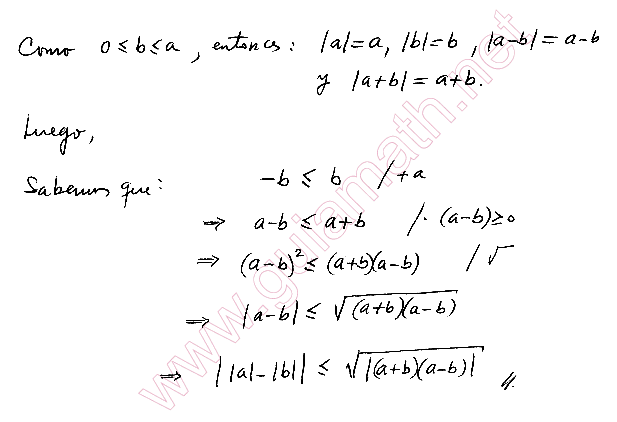 Como 0 ≤ b ≤ a, entonces: |a| = a, |b| = b, |a-b| = a-b
y |a+b| = a+b.
Luego,
Sabemos que: -b ≤ b /+a
⇒ a-b ≤ a+b /· (a-b) ≥ 0
⇒ (a-b)² ≤ (a+b)(a-b) /√
⇒ |a-b| ≤ √(a+b)(a-b)
⇒ ||a|-|b|| ≤ √|(a+b)(a-b)| //.
www.guiamath.net